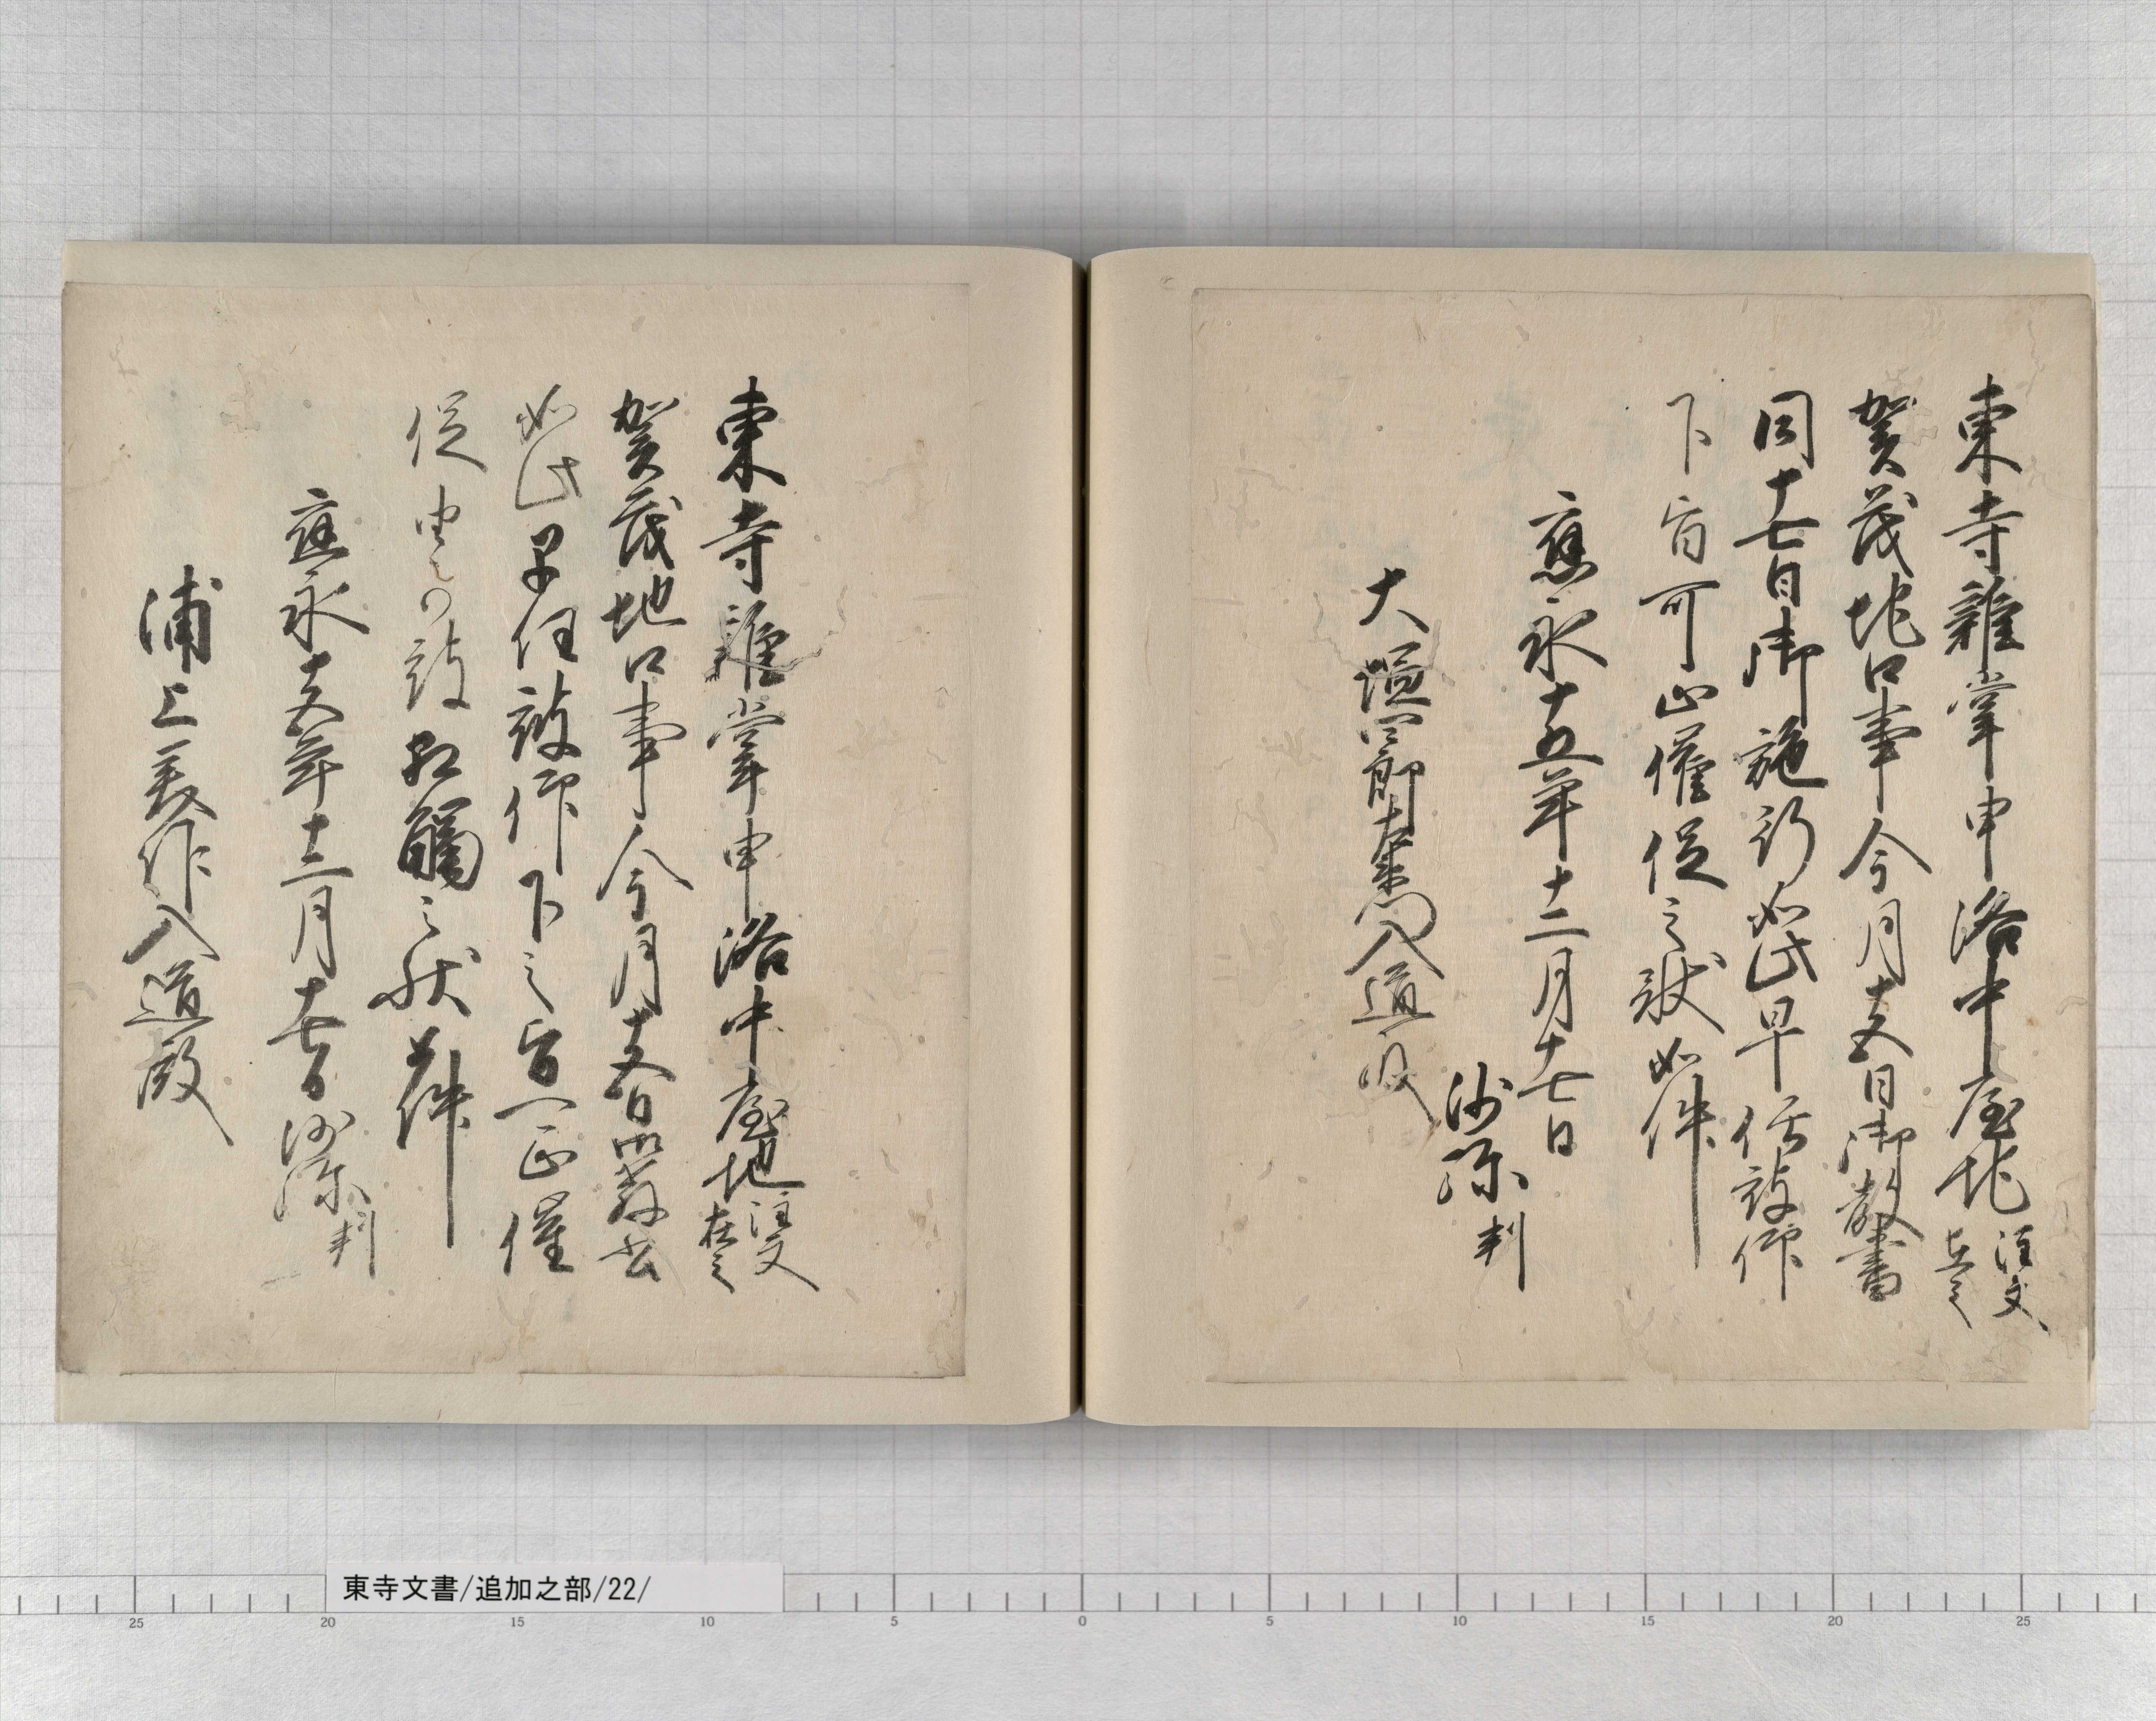 東寺雑掌申洛中屋地注文在之
賀茂地口事今月十五日御教書
同十七日御施行如此早任被仰
下旨可止催促之状如件
應永十五年十二月十七日
沙弥判
大塩四郎左衛門入道殿
東寺雑掌申洛中屋地注文在之
賀茂地口事今月十五日御教書
如此早任被仰下之旨可止催
促由可被相觸之状如件
應永十五年十二月十七日沙弥判
浦上美作入道殿
東寺文書/追加之部/22/
25 20 15 10 5 0 5 10 15 20 25